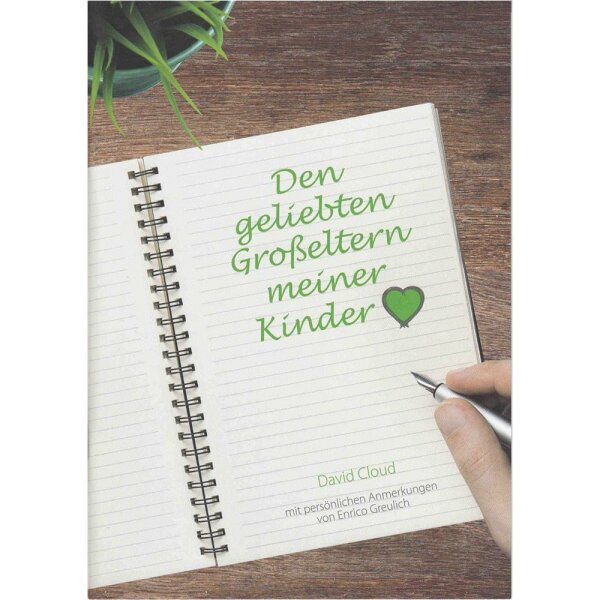 Den
geliebten
Großeltern
meiner
Kinder
David Cloud
mit persönlichen Anmerkungen
von Enrico Greulich